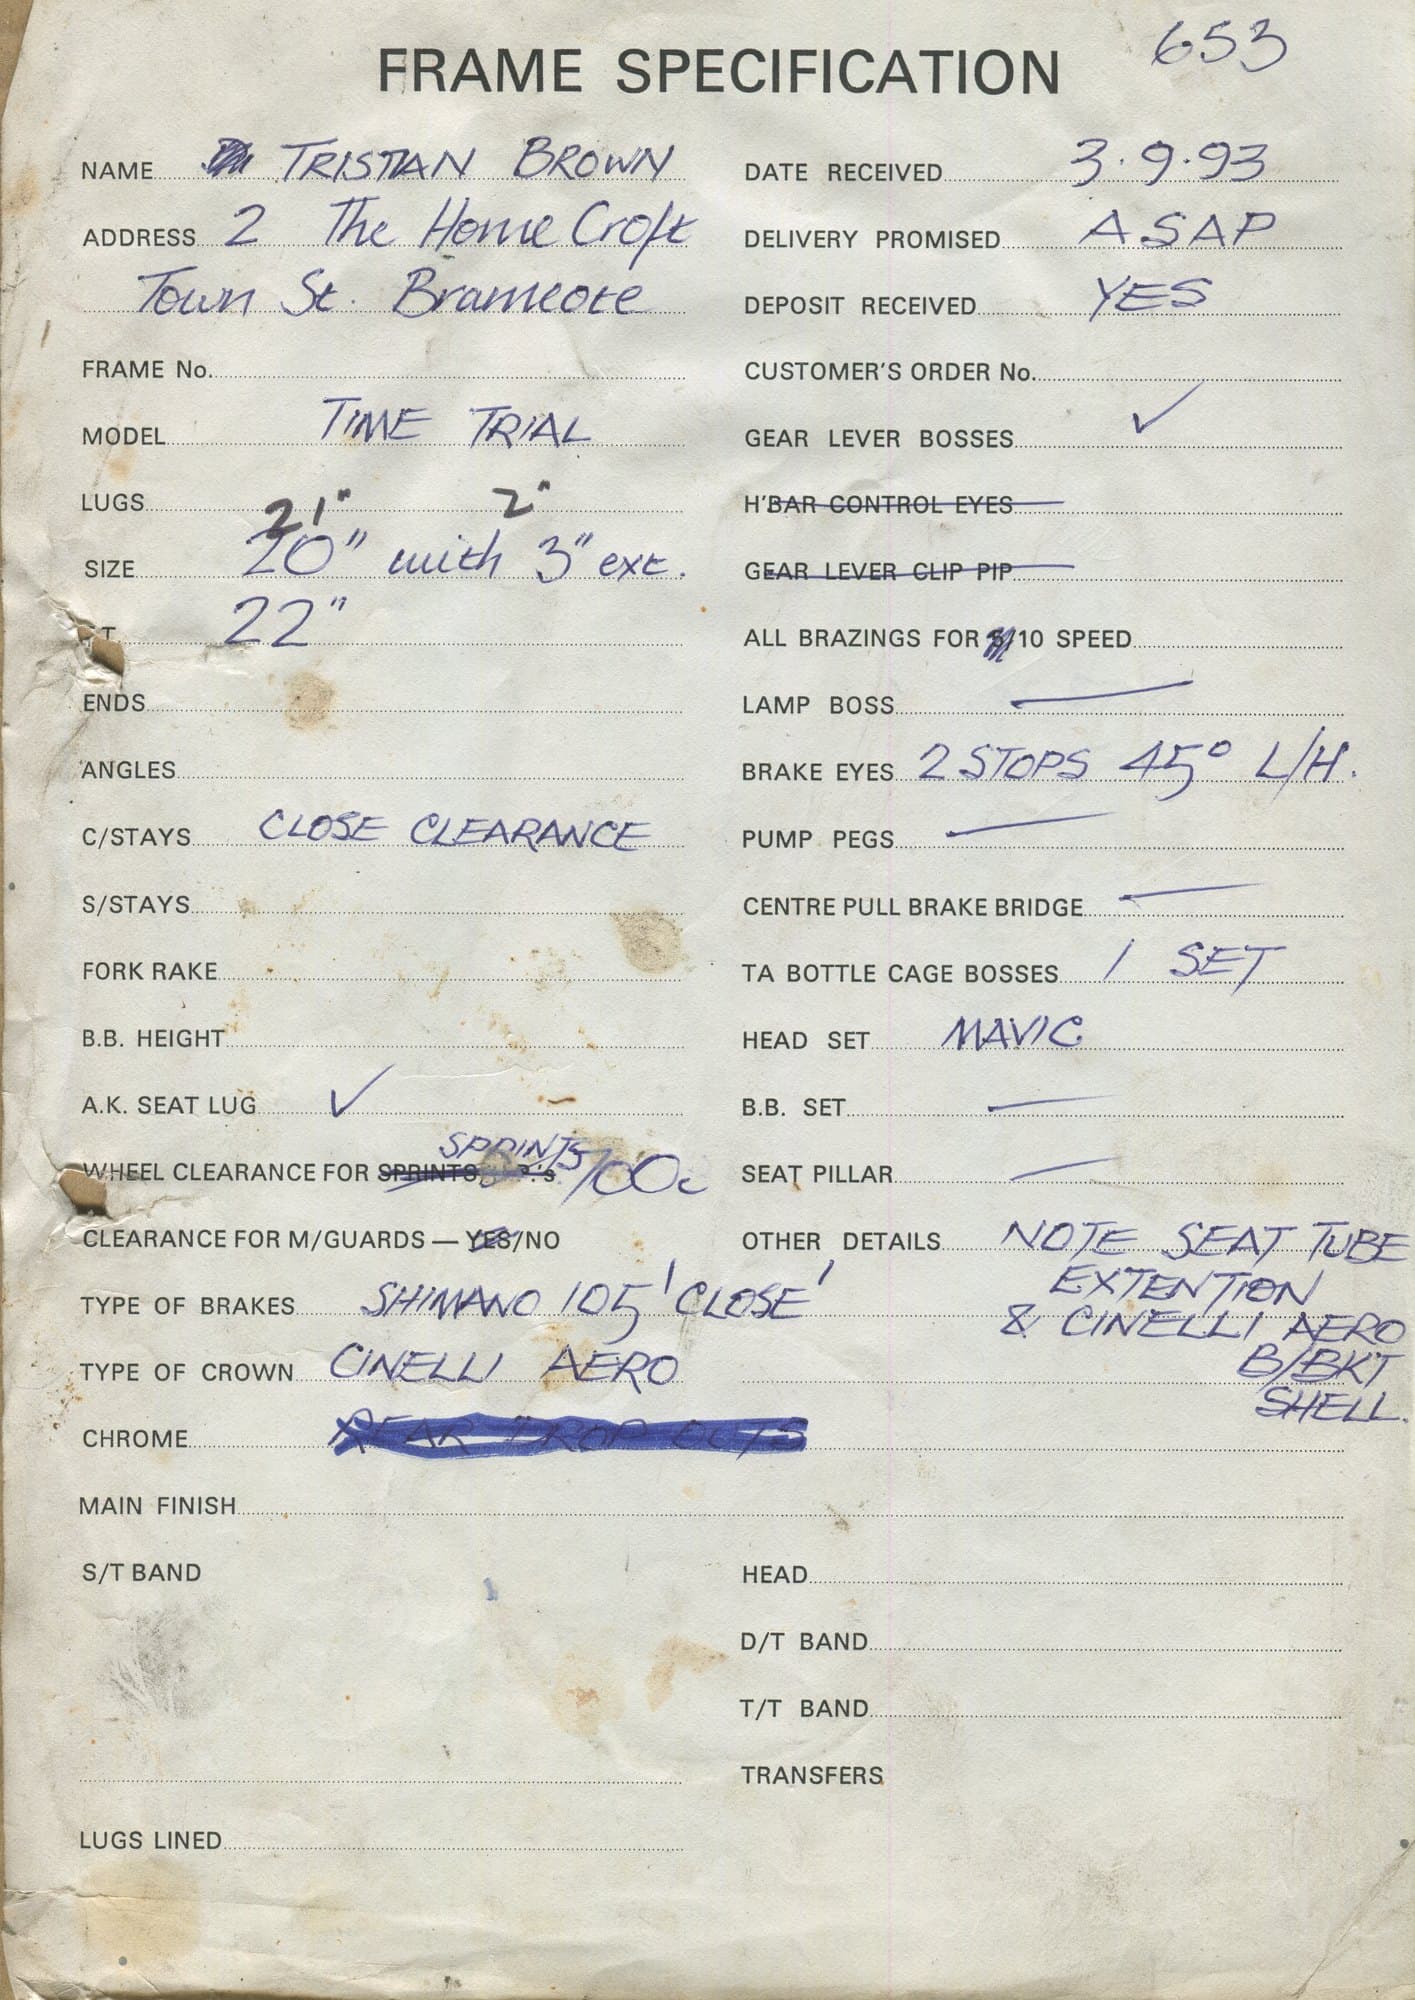 FRAME SPECIFICATION 653
NAME TRISTAN BROWN
ADDRESS 2 The Home Croft
Town St. Bramcote
FRAME No.
MODEL TIME TRIAL
LUGS
21" 2"
SIZE 20" with 3" ext.
T 22"
ENDS
ANGLES
C/STAYS CLOSE CLEARANCE
S/STAYS
FORK RAKE
B.B. HEIGHT
A.K. SEAT LUG ✓
SPRINTS
WHEEL CLEARANCE FOR SPRINTS/ /00c
CLEARANCE FOR M/GUARDS — YES/NO
TYPE OF BRAKES SHIMANO 105 'CLOSE'
TYPE OF CROWN CINELLI AERO
CHROME REAR DROP OUTS
MAIN FINISH
S/T BAND
LUGS LINED
DATE RECEIVED 3.9.93
DELIVERY PROMISED ASAP
DEPOSIT RECEIVED YES
CUSTOMER'S ORDER No.
GEAR LEVER BOSSES ✓
H'BAR CONTROL EYES
GEAR LEVER CLIP PIP
ALL BRAZINGS FOR /10 SPEED
LAMP BOSS —
BRAKE EYES 2 STOPS 45° L/H.
PUMP PEGS —
CENTRE PULL BRAKE BRIDGE —
TA BOTTLE CAGE BOSSES 1 SET
HEAD SET MAVIC
B.B. SET —
SEAT PILLAR —
OTHER DETAILS NOTE SEAT TUBE
EXTENTION
& CINELLI AERO
B/BKT
SHELL.
HEAD
D/T BAND
T/T BAND
TRANSFERS